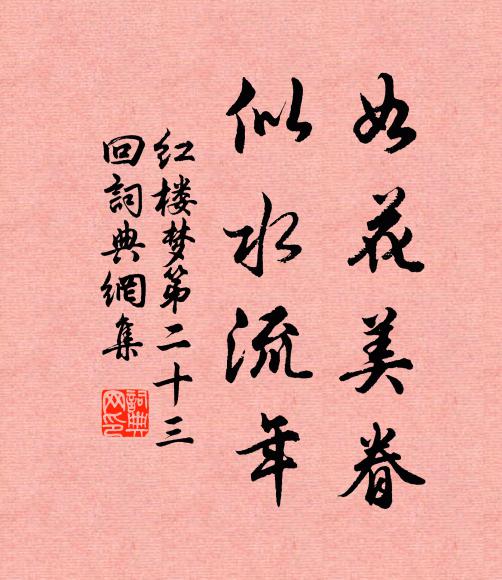 如花美眷
似水流年
红楼梦第二十三
回詞典網集
詞典
网印